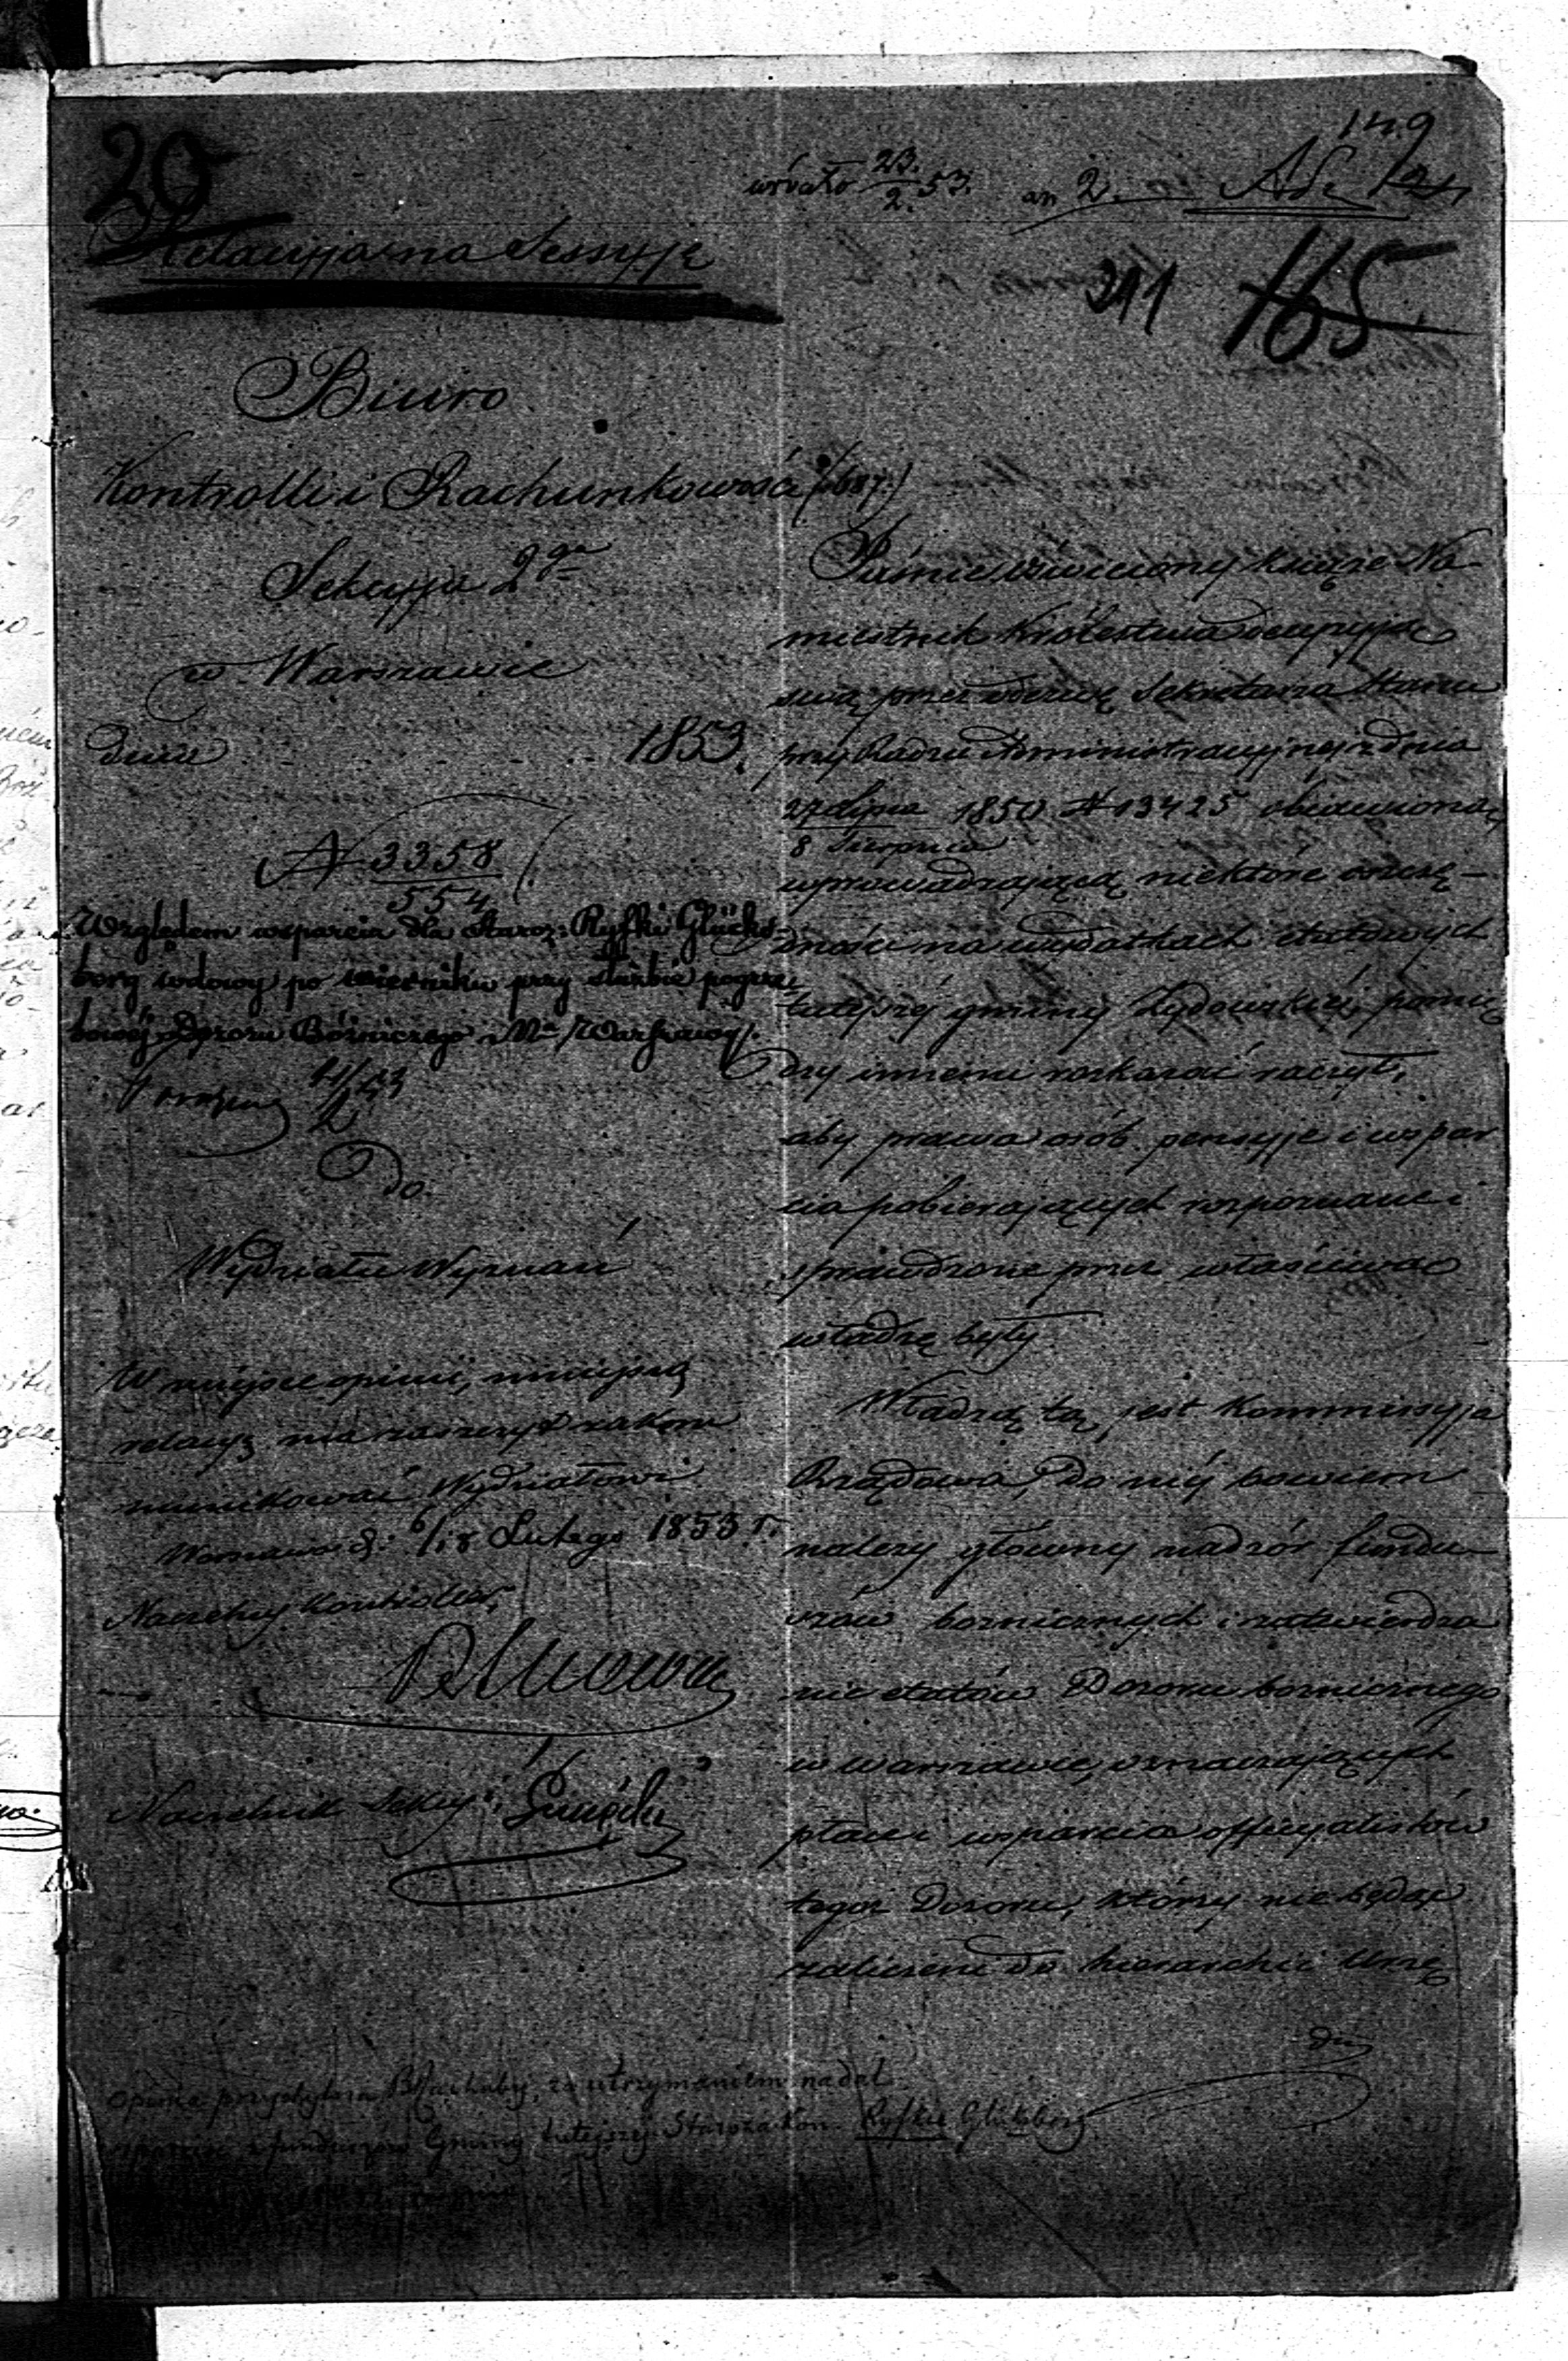 149
20
wróciło 23/2. 53.
an 2.
Relacyja na Sessyję
211 165
Biuro
Kontrolli i Rachunkowości
Sekcyja 2ga
w Warszawie
dnia 1853.
N 3358/554
Względem wsparcia dla Staroz: Ryfki Glücks-
berg wdowy po mierniku przy służbie pogrze-
bowej Dozoru Bóźniczego Mta Warszawy.
Do
Wydziału Wyznań
W miejsce opinii, niniejszą
relacyę ma zaszczyt zakom
munikować Wydziałowi
Warszawa d: 6/18 Lutego 1853 r.
Naczelny Kontroler,
Naczelnik Sekcyi
Jaśnie Oświecony Książe Na-
miestnik Królestwa decyzyją
swą przez odezwę Sekretarza Stanu
przy Radzie Administracyjnej z dnia
27 Lipca 1850 N 13425 obiawioną,
8 Sierpnia
wprowadzającą niektóre oszczę-
dności na wydatkach etatowych
tutejszéj gminy Żydowskiéj, pomię-
dzy innemi rozkazać raczył,
aby prawa osób pensyje i wspar
cia pobierających rozpoznane i
sprawdzone przez właściwą
władzę były
Władzą tą, jest Kommissyja
Rządowa, do niéj bowiem
należy główny nadzór fundu-
szów bożniczych i zatwierdza
nie etatów Dozoru bożniczego
w Warszawie, oznaczających
płace i wsparcia officyalistów
tegoż Dozoru, którzy nie będąc
zaliczeni do hierarchii Urzę
dn
Opinia przychylna, za utrzymaniem nadal
wsparcia z funduszów Gminy tutejszej Starozakon. Ryfkie Glüksberg